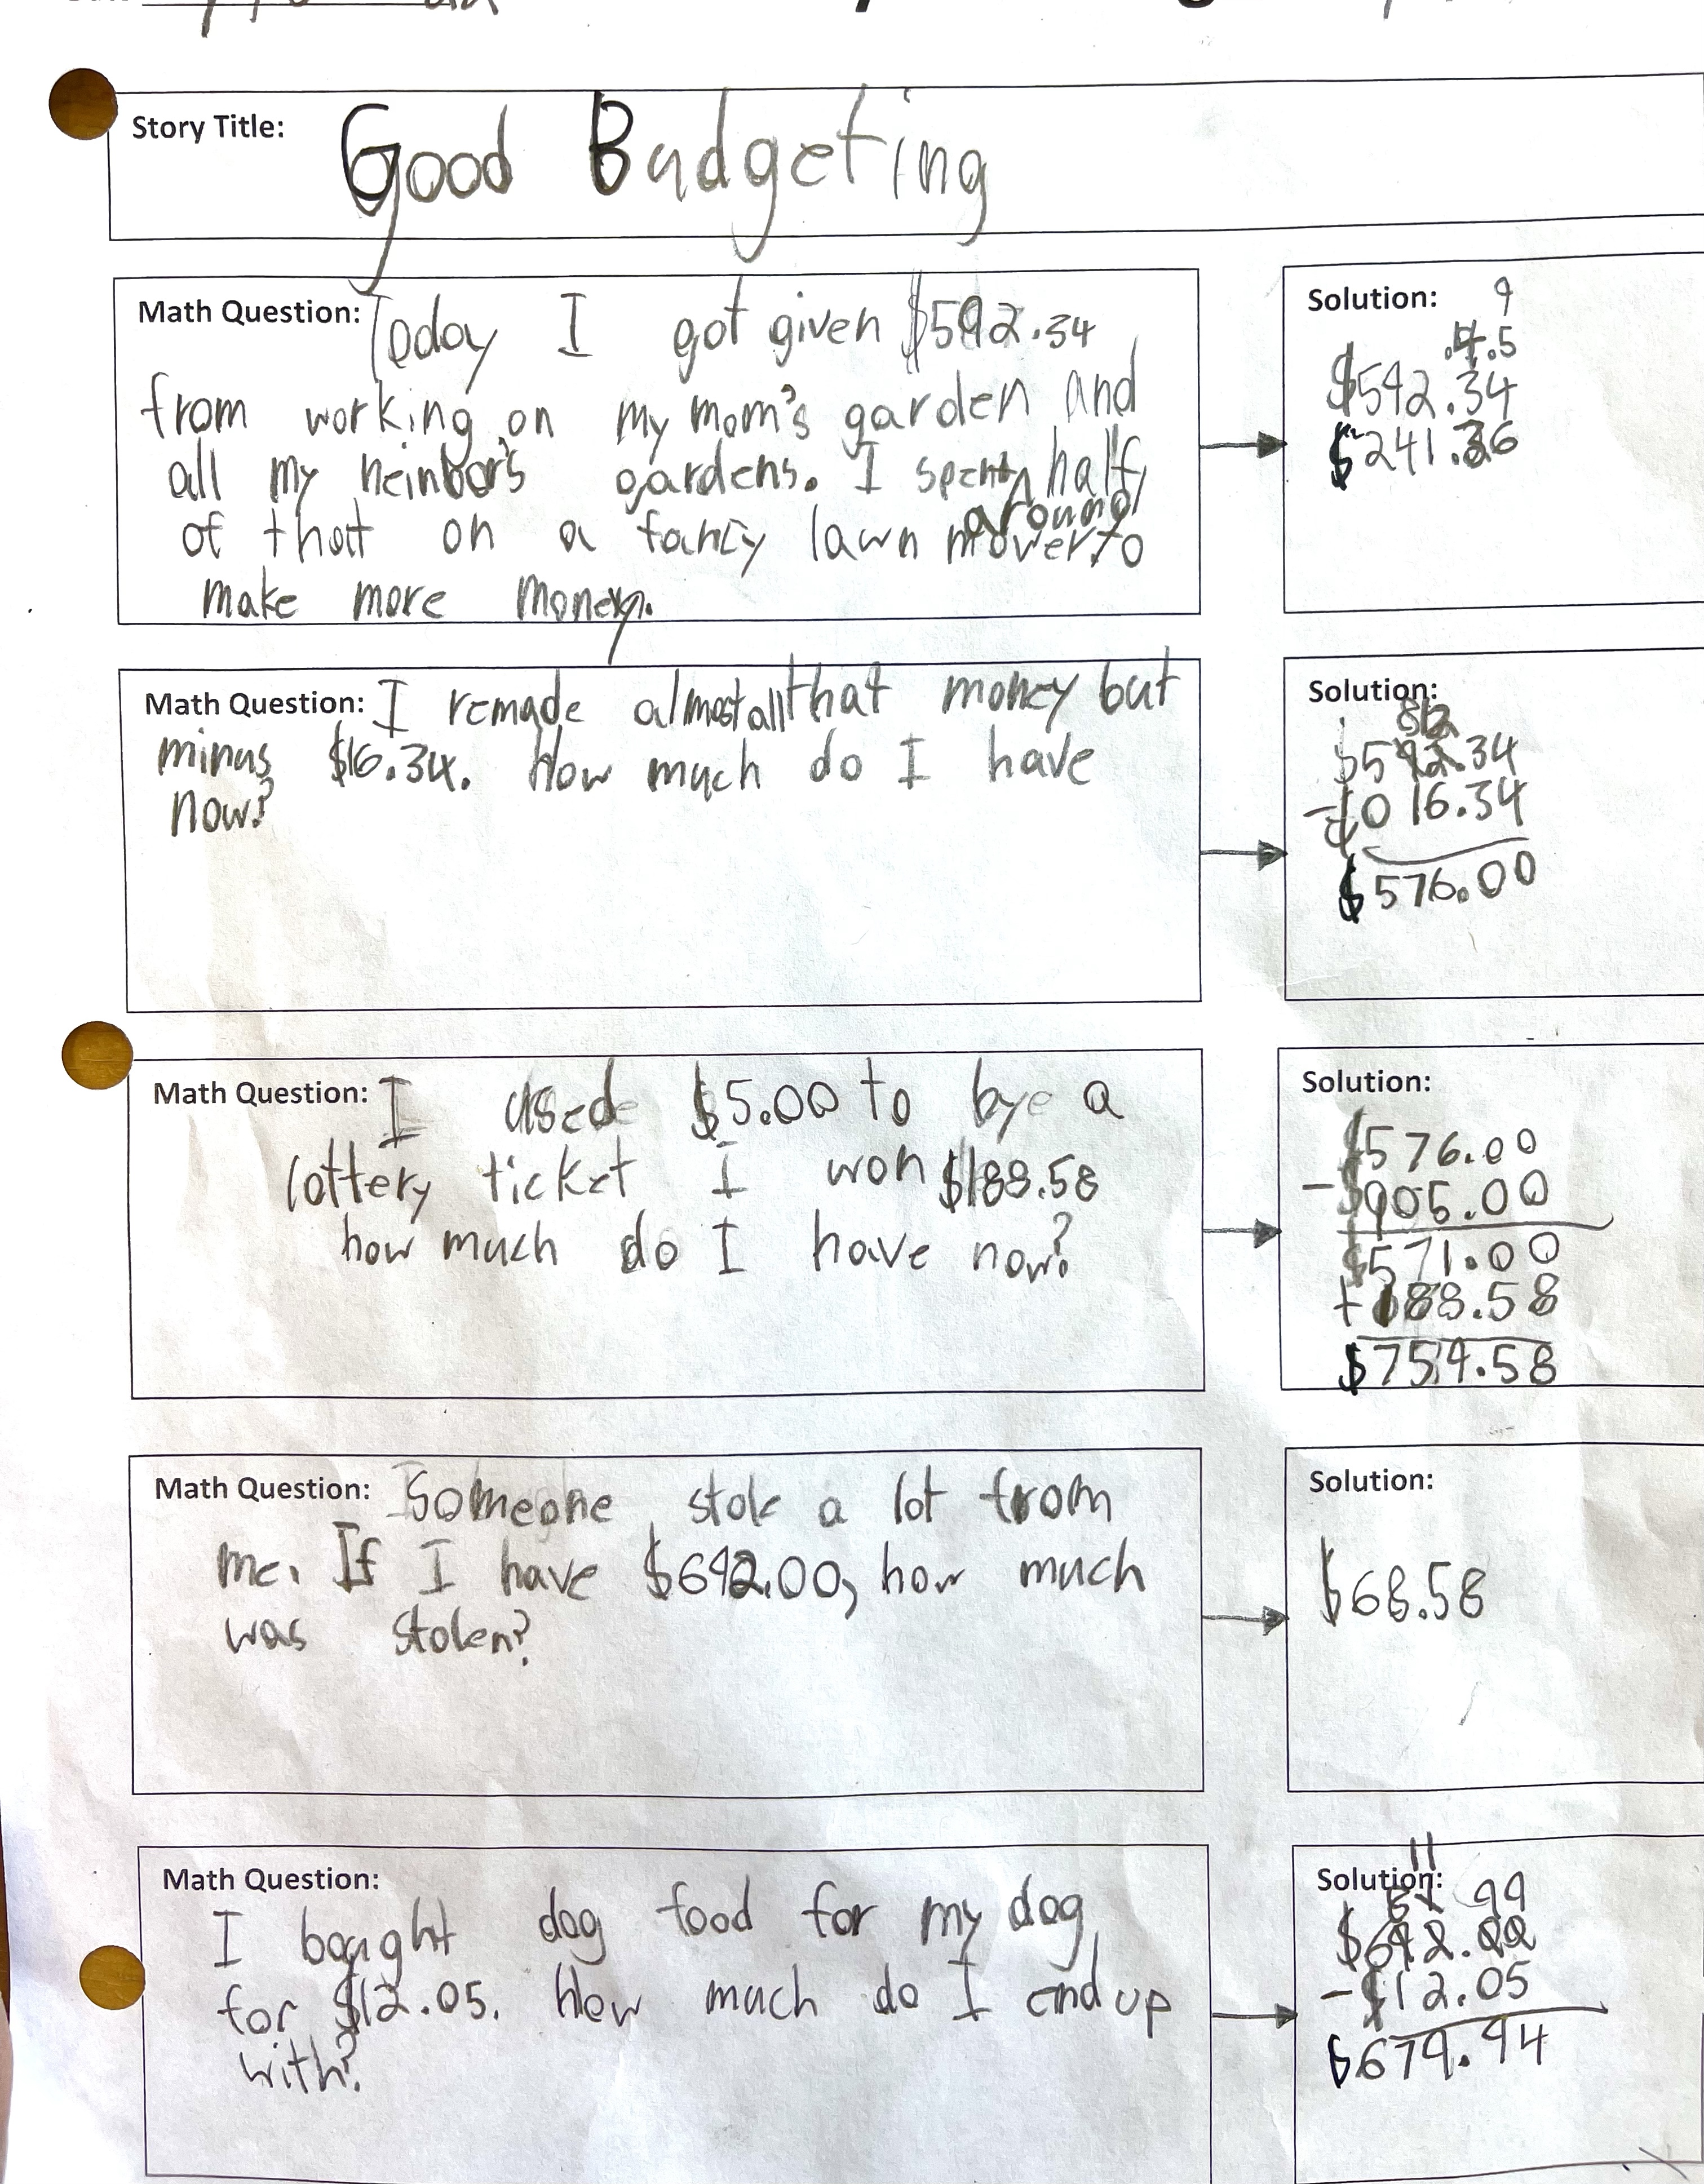 Story Title: Good Budgeting
Math Question: Today I got given $592.34
from working on my mom's garden and
all my neinbor's gardens. I spent half
around
of that on a fancy lawn mover to
make more money.
Solution:
9
.4.5
$592.34
$241.36
Math Question: I remade almost all that money but
minus $16.34. How much do I have
now?
Solution:
812
$592.34
- 016.34
$576.00
Math Question: I used $5.00 to bye a
lottery ticket I won $188.58
how much do I have now?
Solution:
$576.00
- $005.00
$571.00
+188.58
$759.58
Math Question: Someone stole a lot from
me. If I have $692.00, how much
was stolen?
Solution:
$68.58
Math Question:
I bought dog food for my dog
for $12.05. How much do I end up
with?
Solution:
11
99
$692.00
- $12.05
$679.94